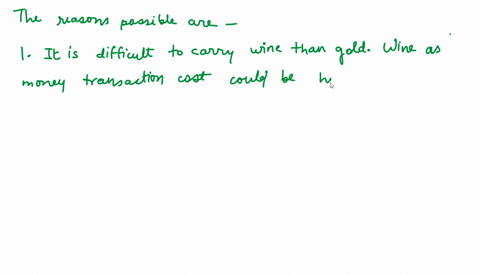 The reasons possible are –
1. It is difficult to carry wine than gold. Wine as
money transaction cost could be h